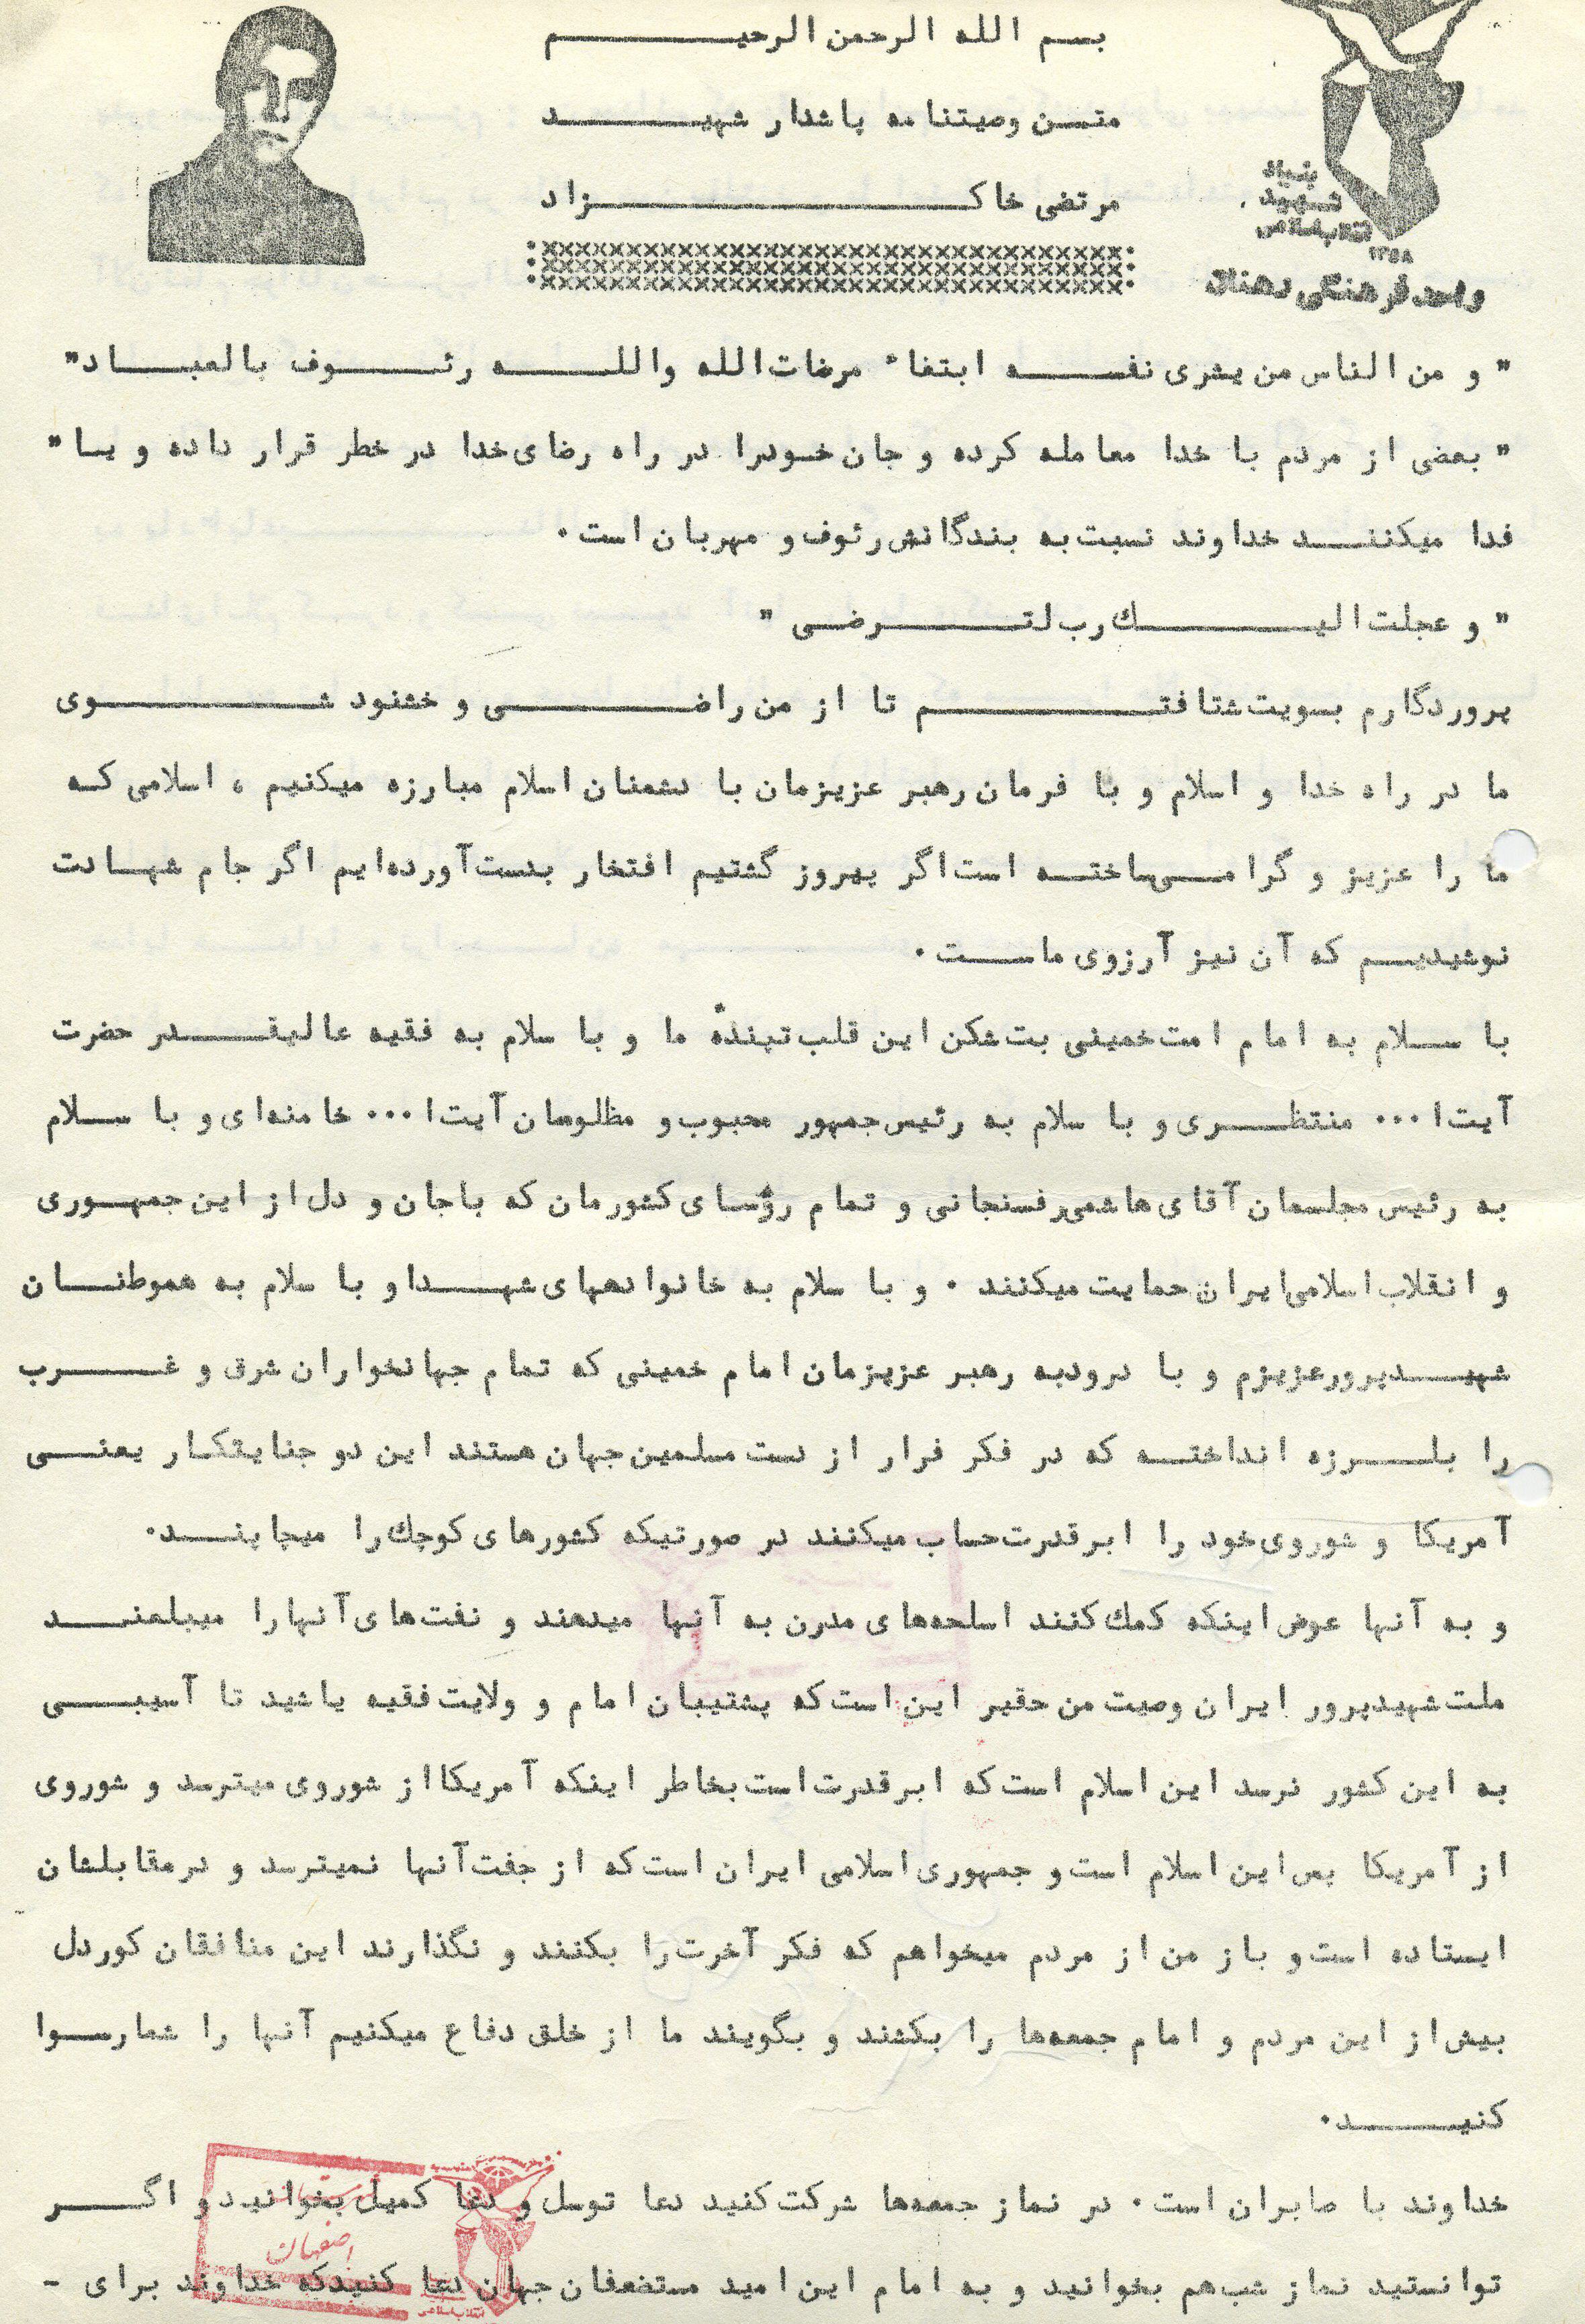 بسم الله الرحمن الرحیم
متن وصیتنامه پاسدار شهید
مرتضی خاکزاد
بنیاد
شهید
انقلاب اسلامی
۱۳۵۸
واحد فرهنگی رهنان
" و من الناس من یشری نفسه ابتغاء مرضات الله والله رئوف بالعباد"
" بعضی از مردم با خدا معامله کرده و جان خودرا در راه رضای خدا در خطر قرار داده و یا "
فدا میکنند خداوند نسبت به بندگانش رئوف و مهربان است.
" و عجلت الیك رب لترضی "
پروردگارم بسویت شتافتم تا از من راضی و خشنود شوی
ما در راه خدا و اسلام و با فرمان رهبر عزیزمان با دشمنان اسلام مبارزه میکنیم ، اسلامی که
ما را عزیز و گرامی ساخته است اگر پیروز گشتیم افتخار بدست آورده ایم اگر جام شهادت
نوشیدیم که آن نیز آرزوی ماست.
با سلام به امام امت خمینی بت شکن این قلب تپندهٔ ما و با سلام به فقیه عالیقدر حضرت
آیت ا... منتظری و با سلام به رئیس جمهور محبوب و مظلومان آیت ا... خامنه ای و با سلام
به رئیس مجلسمان آقای هاشمی رفسنجانی و تمام رؤسای کشورمان که باجان و دل از این جمهوری
و انقلاب اسلامی ایران حمایت میکنند . و با سلام به خانوادههای شهدا و با سلام به هموطنان
شهیدپرورعزیزم و با درودبه رهبر عزیزمان امام خمینی که تمام جهانخواران شرق و غرب
را بلرزه انداخته که در فکر فرار از دست مسلمین جهان هستند این دو جنایتکار یعنی
آمریکا و شوروی خود را ابرقدرت حساب میکنند در صورتیکه کشورهای کوچك را میچاپند.
و به آنها عوض اینکه کمك کنند اسلحه های مدرن به آنها میدهند و نفت های آنهارا میبلعند
ملت شهیدپرور ایران وصیت من حقیر این است که پشتیبان امام و ولایت فقیه باشید تا آسیبی
به این کشور نرسد این اسلام است که ابرقدرت است بخاطر اینکه آمریکا از شوروی میترسد و شوروی
از آمریکا پس این اسلام است و جمهوری اسلامی ایران است که از جفت آنها نمیترسد و درمقابلشان
ایستاده است و باز من از مردم میخواهم که فکر آخرت را بکنند و نگذارند این منافقان کوردل
بیش از این مردم و امام جمعه ها را بکشند و بگویند ما از خلق دفاع میکنیم آنها را شمارسوا
کنید.
خداوند با صابران است . در نماز جمعه ها شرکت کنید دعا توسل و دعا کمیل بخوانید و اگر
توانستید نماز شب هم بخوانید و به امام این امید مستضعفان جهان دعا کنیدکه خداوند برای -
اصفهان
انقلاب اسلامی